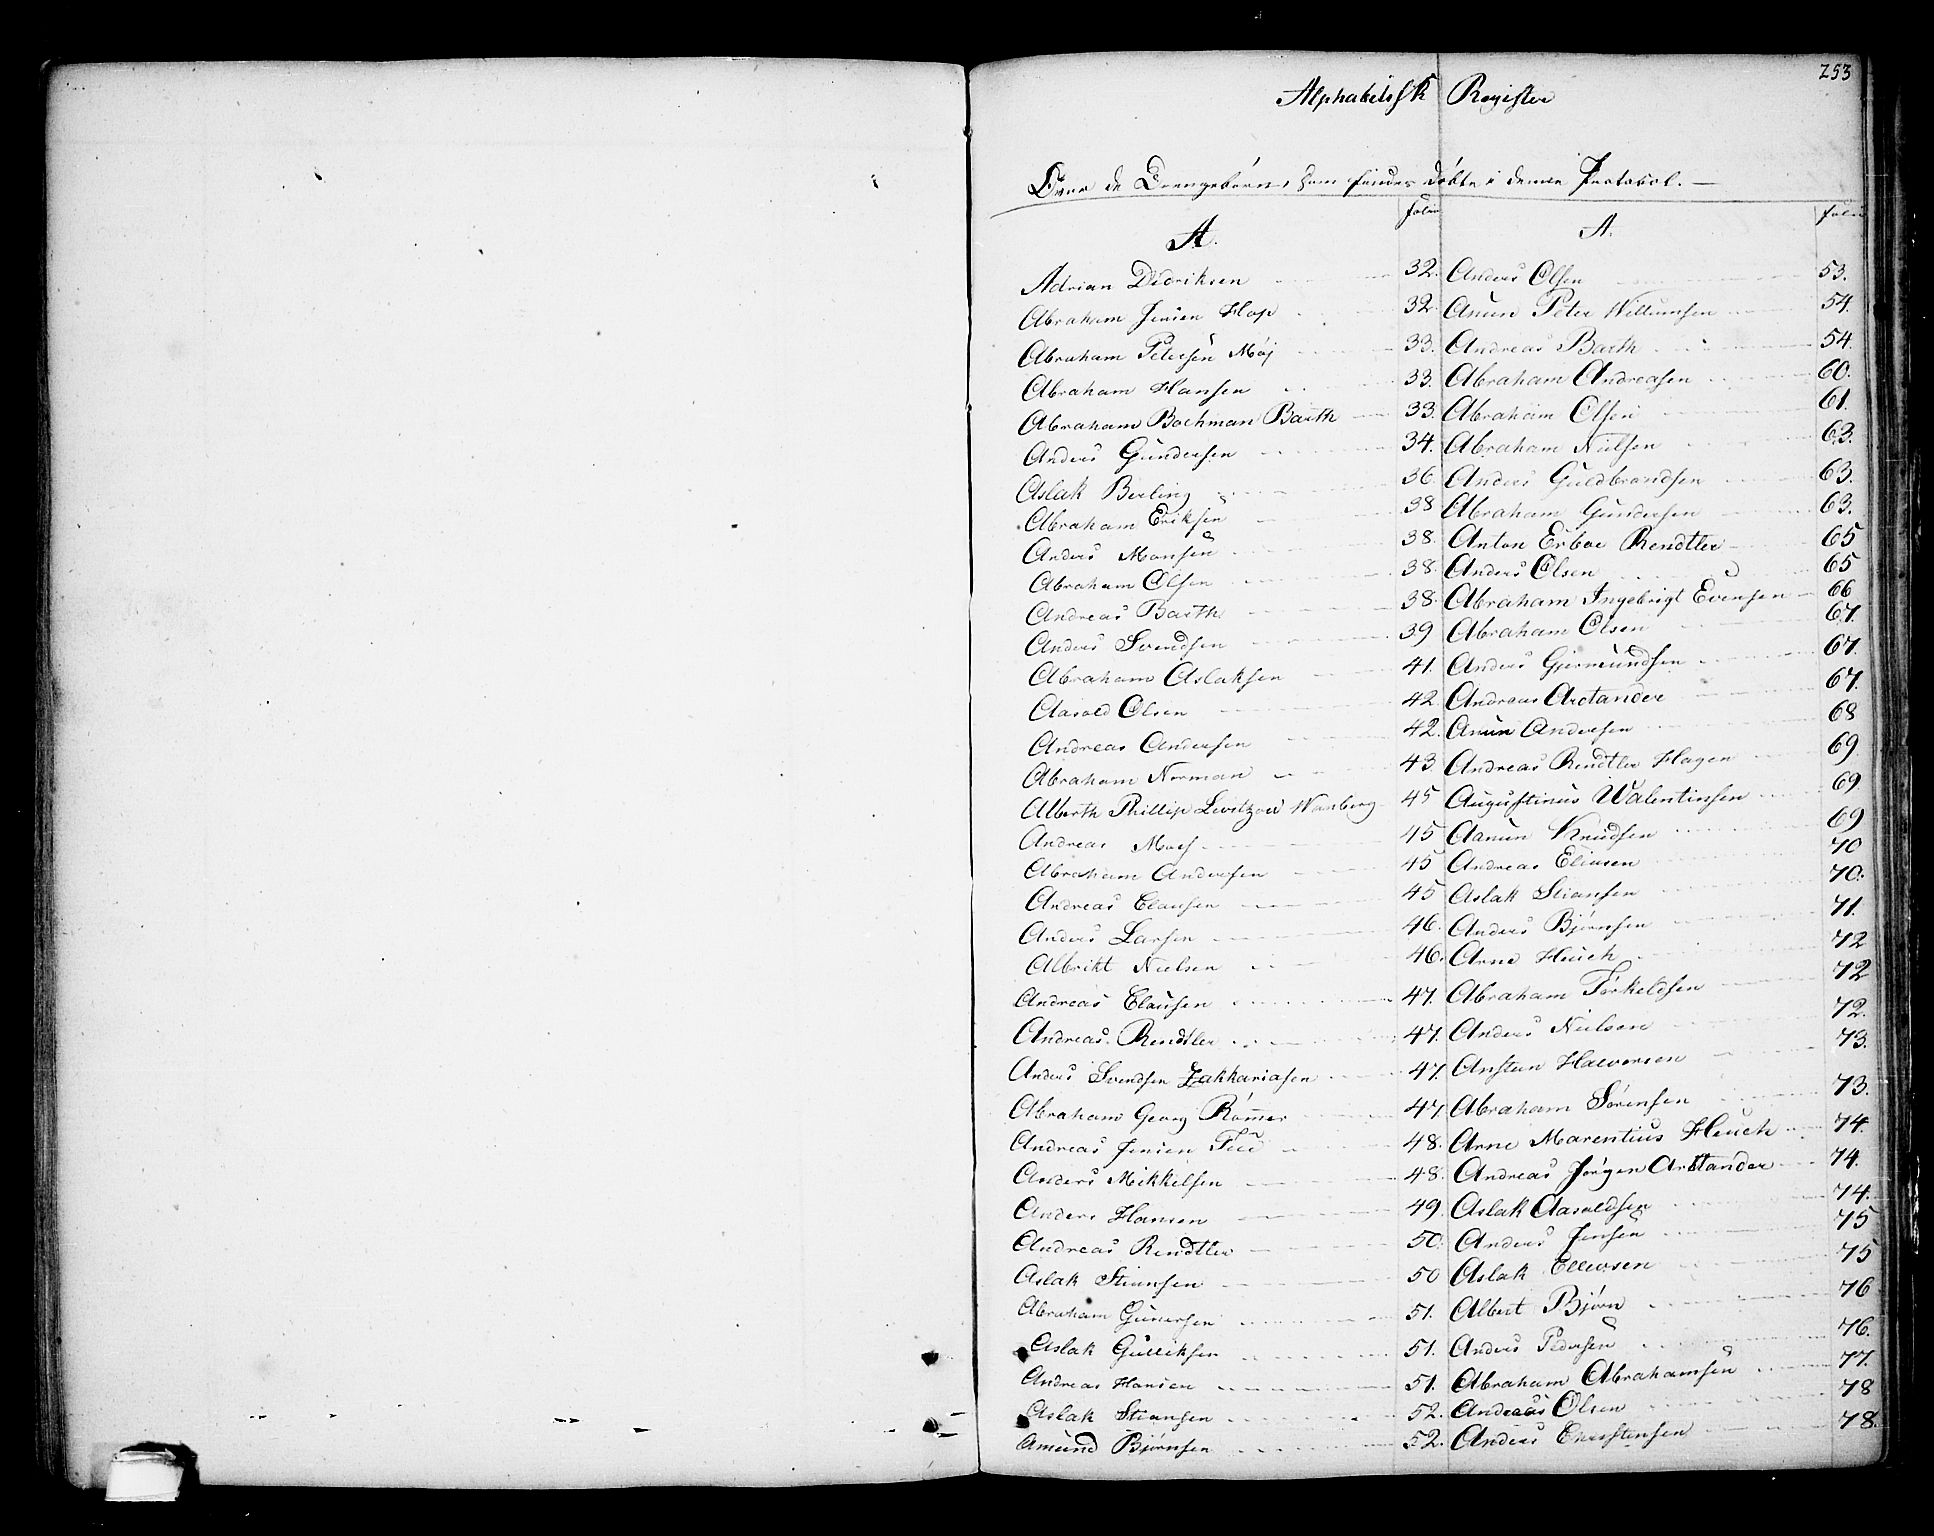 253
Alphabetisk Register
Over de Drengebørn, som findes døbte i denne Protocol. —
Folio
A.
Adrian Didriksen 32.
Abraham Jensen Hop 32.
Abraham Petersen Møj 33.
Abraham Hansen 33.
Abraham Bachman Barth 33.
Anders Gundersen 34.
Aslak Berling 36.
Abraham Eriksen 38
Anders Monsen 38.
Abraham Olsen 38.
Andreas Barth 38.
Anders Svendsen 39
Abraham Aslaksen 41.
Aasold Olsen 42.
Andreas Andersen 42.
Abraham Norman 43.
Alberth Phillip Levitzow Wanberg 45
Andreas Moes 45
Abraham Andersen 45
Andreas Clausen 45
Anders Larsen 46.
Albrikt Nielsen 46.
Andreas Clausen 47.
Andreas Rendtler 47.
Anders Svendsen Zakkariasen 47.
Abraham Georg Rømer 47
Andreas Jensen 48.
Anders Mikkelsen 48.
Anders Hansen 49.
Andreas Rendtler 50.
Aslak Stiansen 50
Abraham Gunersen 51.
Aslak Gulliksen 51.
Andreas Hansen 51.
Aslak Stiansen 52.
Amund Bjørnsen 52.
Folio
A.
Anders Olsen 53.
Anun Peter Willumsen 54.
Andreas Barth 54.
Abraham Andreasen 60.
Abraham Olsen 61.
Abraham Nielsen 63.
Anders Guldbrandsen 63.
Abraham Gundersen 63.
Anton Erboe Rendtler 65
Anders Olsen 65
Abraham Ingebrigt Evensen 66
Abraham Olsen 67.
Anders Gjermundsen 67.
Andreas Arctander 67.
Anun Andersen 68
Andreas Rendtler Hagen 69
Augustinus Walentinsen 69
Aanun Knudsen 69
Andreas Eliasen 70
Aslak Stiansen 70.
Anders Bjørnsen 71.
Arne Heuch 72
Abraham Torkeldsen 72
Anders Nielsen 72.
Ansten Halvorsen 73.
Abraham Sørensen 73.
Arne Marentius Heuch 74.
Andreas Jørgen Arctander 74.
Aslak Aasoldsen 74.
Anders Jensen 75
Aslak Ellevsen 75
Albert Bjørn 76
Anders Pedersen 76.
Abraham Abrahamsen 77.
Andreas Olsen 78
Anders Christensen 78.